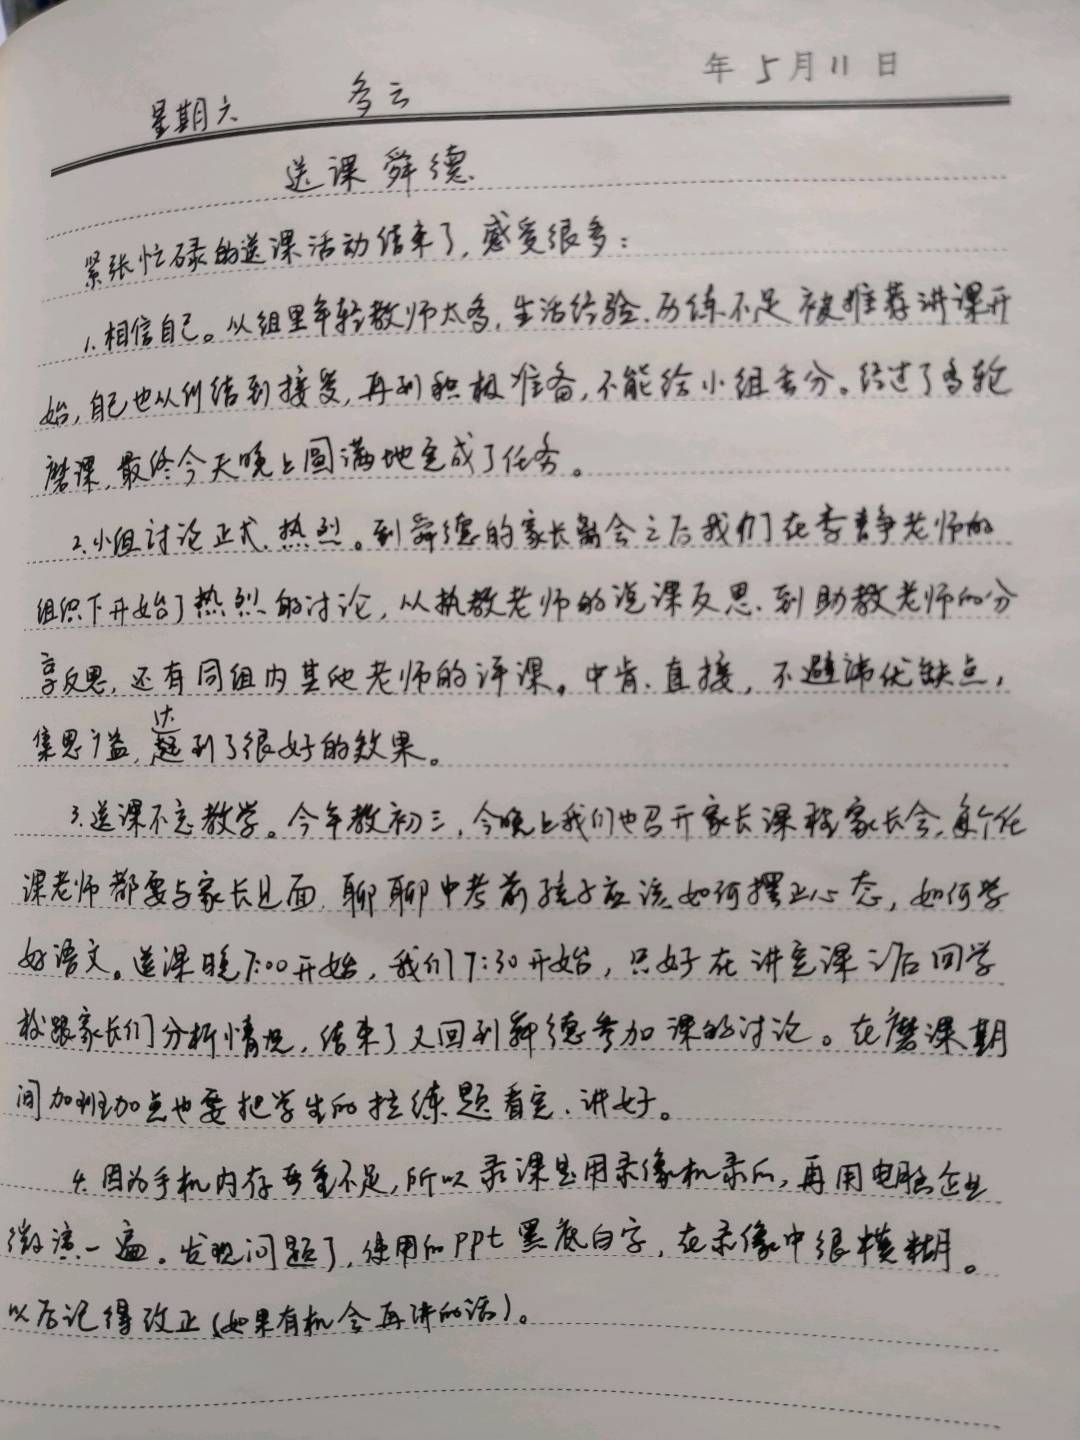 年5月11日
星期六 多云
送课舜德
紧张忙碌的送课活动结束了,感受很多:
1.相信自己。从组里年轻教师太多,生活经验、历练不足被推荐讲课开
始,自己也从纠结到接受,再到积极准备,不能给小组丢分。经过了多轮
磨课,最终今天晚上圆满地完成了任务。
2.小组讨论正式、热烈。到舜德的家长离会之后我们在李静老师的
组织下开始了热烈的讨论,从执教老师的说课反思、到助教老师的分
享反思,还有同组内其他老师的评课。中肯、直接,不避讳优缺点,
集思广益,达到了很好的效果。
3.送课不忘教学。今年教初三,今晚上我们也召开家长课程家长会,每个任
课老师都要与家长见面,聊聊中考前孩子应该如何摆正心态,如何学
好语文。送课晚7:00开始,我们7:30开始,只好在讲完课之后回学
校跟家长们分析情况,结束了又回到舜德参加课的讨论。在磨课期
间加班加点也要把学生的拉练题看完、讲好。
4.因为手机内存严重不足,所以录课是用录像机录的,再用电脑企业
微演一遍。发现问题了,使用的ppt黑底白字,在录像中很模糊。
以后记得改正(如果有机会再讲的话)。